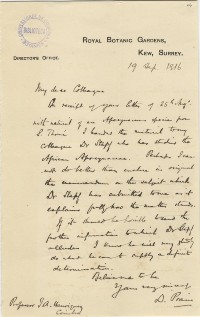 ROYAL BOTANIC GARDENS,
KEW, SURREY.
DIRECTOR'S OFFICE.
19 Sep. 1916
My dear Colleague
On receipt of your letter of 25th Aug.
with material of an Apocynum species from
S. I handed the material to my
colleague Dr Stapf who has studied the
African Apocynaceae. Perhaps I can
not do better than enclose in original
the memorandum on the subject which
Dr Stapf has submitted to me as it
explains fully how the matter stands.
If it should be possible to send the
further information to which Dr Stapf
alludes I know he will very gladly
do what he can to supply a definite
determination.
Believe me to be
Yours very sincerely
D. Prain
Professor J. A. Henriques
Coimbra